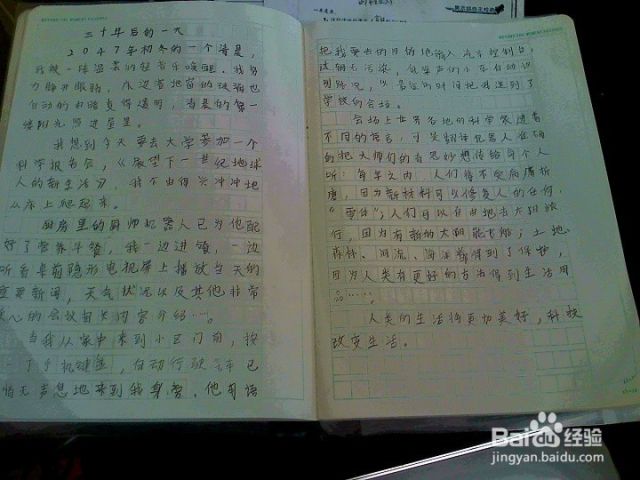 三十年后的一天
2047年初冬的一个清晨,
我被一阵温柔的轻音乐唤醒。我努
力睁开眼睛,床边落地窗的玻璃也
自动的由暗变得透明,清晨的第一
缕阳光照进屋里。
我想到今天要去大学参加一个
科学报告会,《展望下一世纪地球
人的新生活》,我不由得兴冲冲地
从床上爬起来。
厨房里的厨师机器人已为他配
好了营养午餐,我一边进餐,一边
听着桌前隐形电视屏上播放当天的
重要新闻,天气状况以及其他非常
关心的会议有关内容介绍……。
当我从家中来到小区门前,按
一下手机键盘,自动行驶汽车已
悄无声息地来到我身旁。他用语
把我要去的目的地输入汽车控制台,
这辆无污染,低噪声的小车自动识
别路况,以
的时间把我送到了
学校的会场。
会场上世界各地的科学家通着
不同的语言,可
翻译机器人在同
的把大师们的奇思妙想传给每个人
听:每年之内,人们将不受病魔折
磨,因为新材料可以修复人的任何
“零件”;人们可以自由地去太阳旅
行,因为有新的太阳能飞船;土地
森林、河流、海洋都得到了保护,
因为人类有更好的方法得到生活用
品……。
人类的生活将更加美好,科技
改变生活。
Baidu经验
jingyan.baidu.com